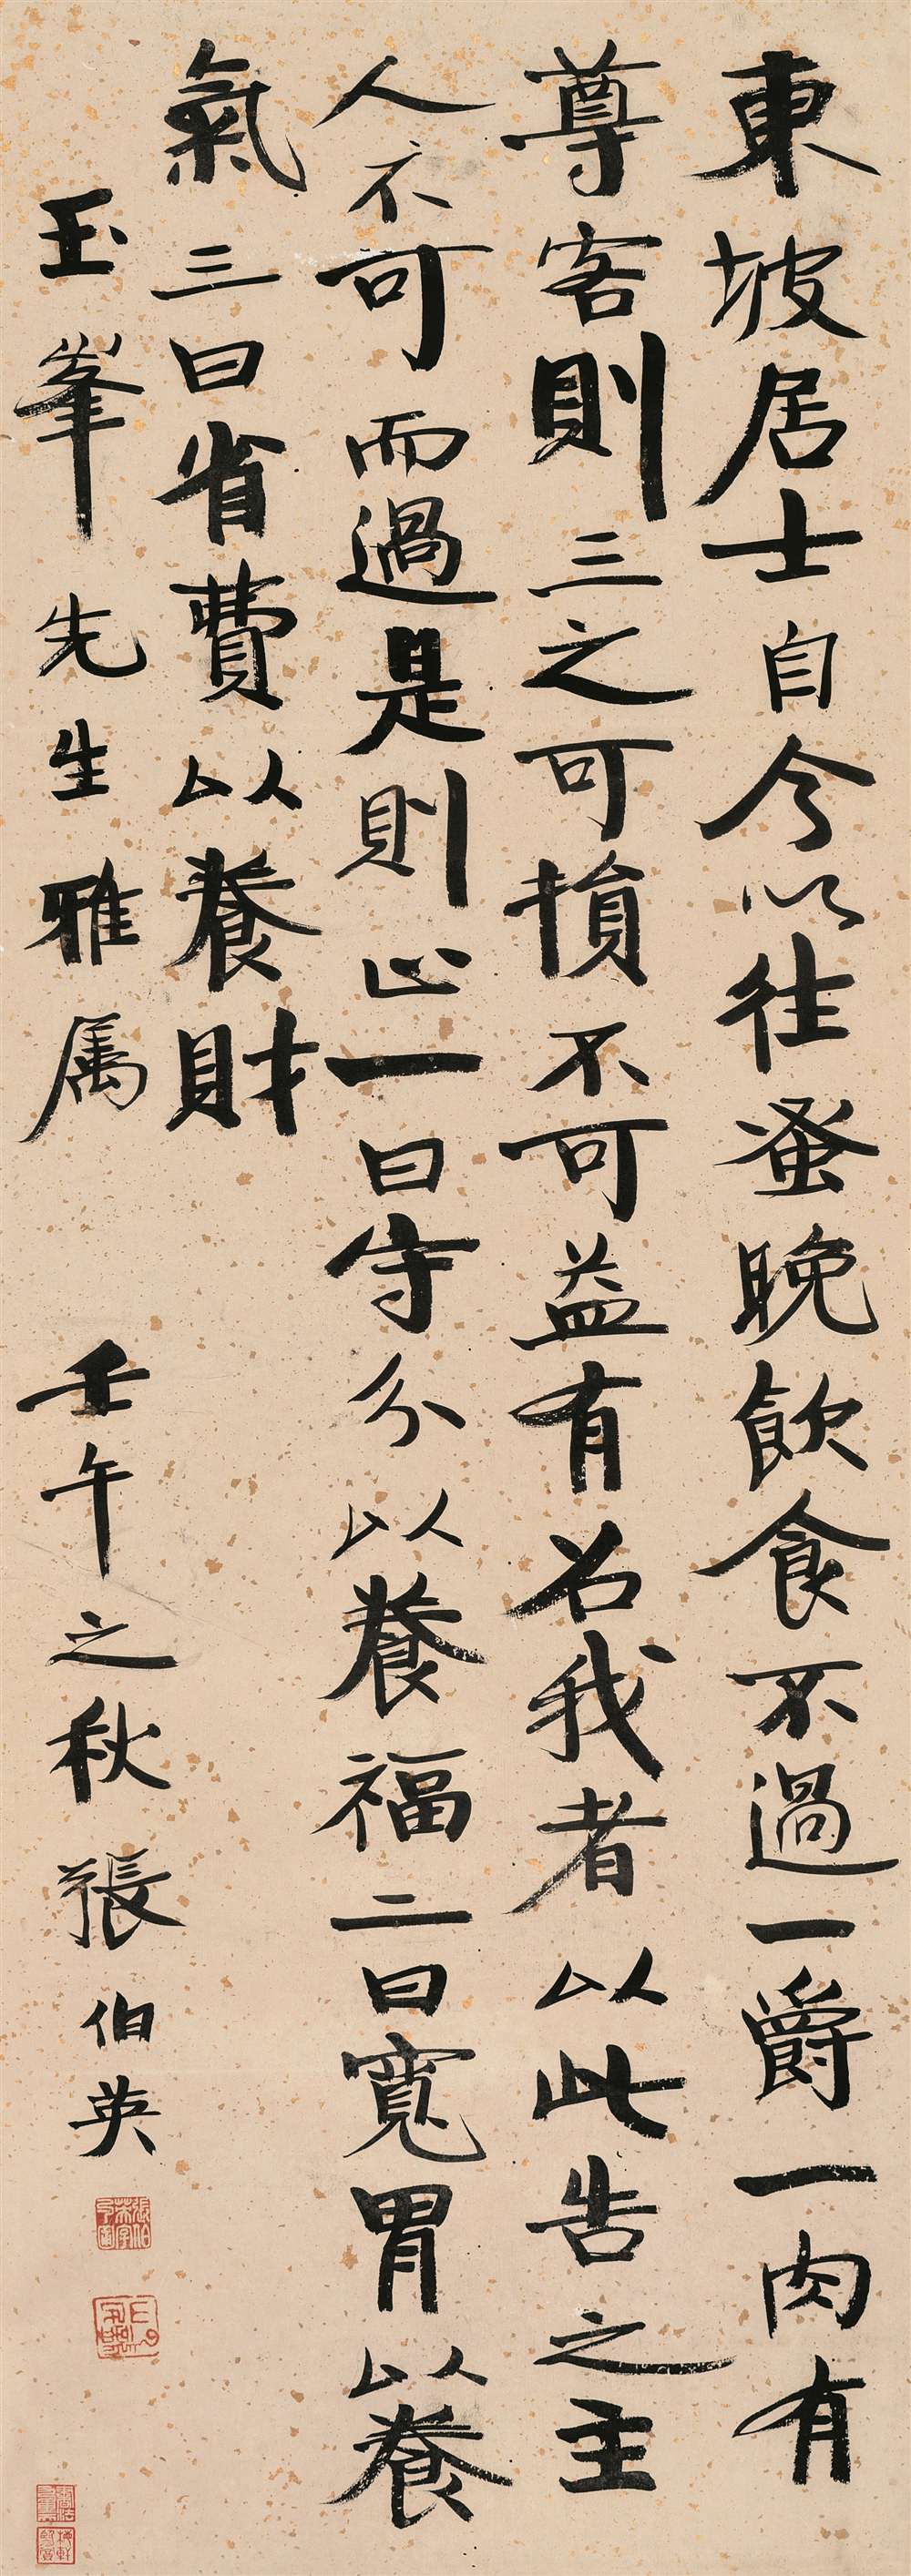 東坡居士自今以往蚤晚飲食不過一爵一肉有
尊客則三之可損不可益有召我者以此告之主
人不可而過是則止一曰守分以養福二曰寬胃以養
氣三曰省費以養財
玉峯先生雅属
壬午之秋張伯英